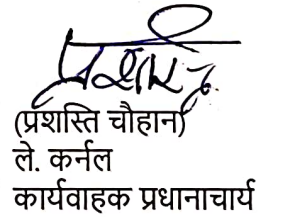 (प्रशस्ति चौहान)
ले. कर्नल
कार्यवाहक प्रधानाचार्य